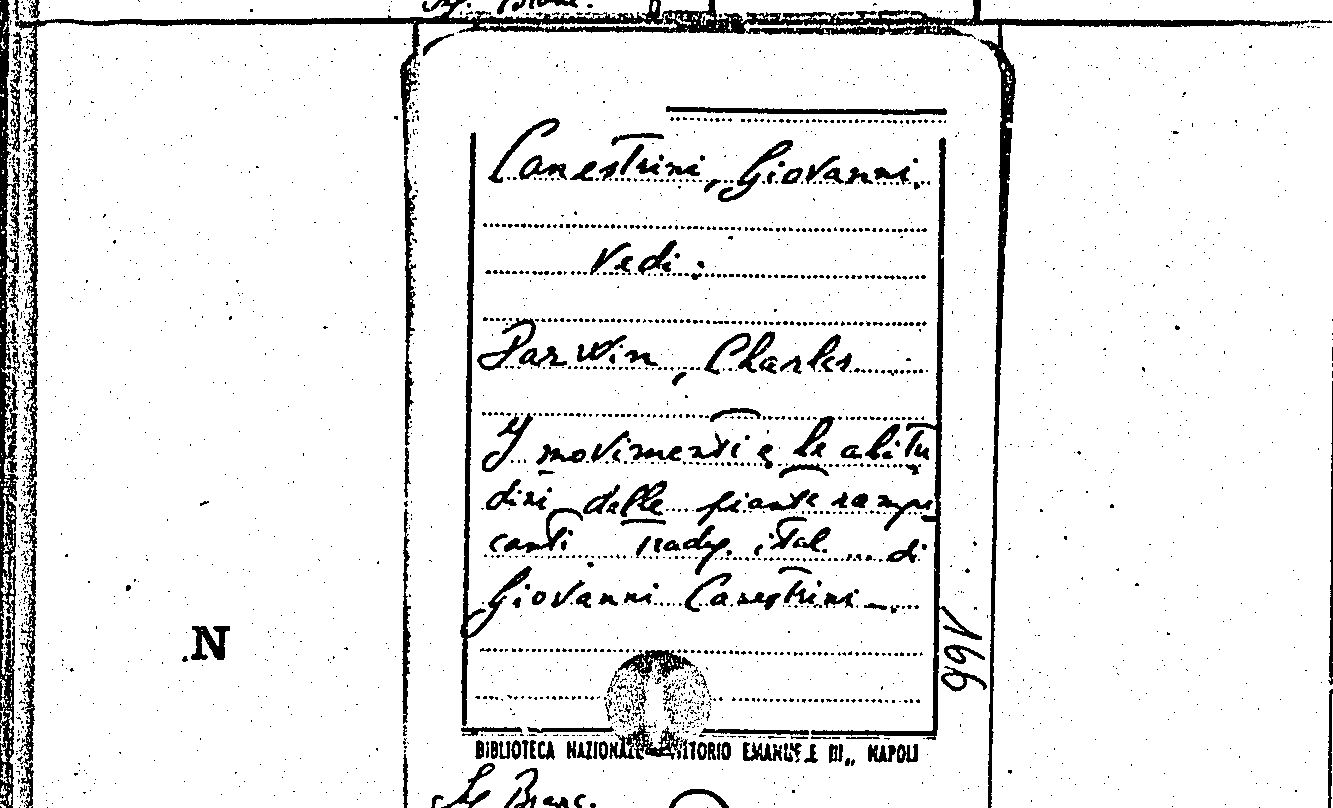 Canestrini, Giovanni.
Vedi:
Darwin, Charles
I movimenti e le abitu
dini delle piante rampi
canti trady. ital. ... di
Giovanni Canestrini
166
N
BIBLIOTECA NAZIONALE VITTORIO EMANUELE III, NAPOLI